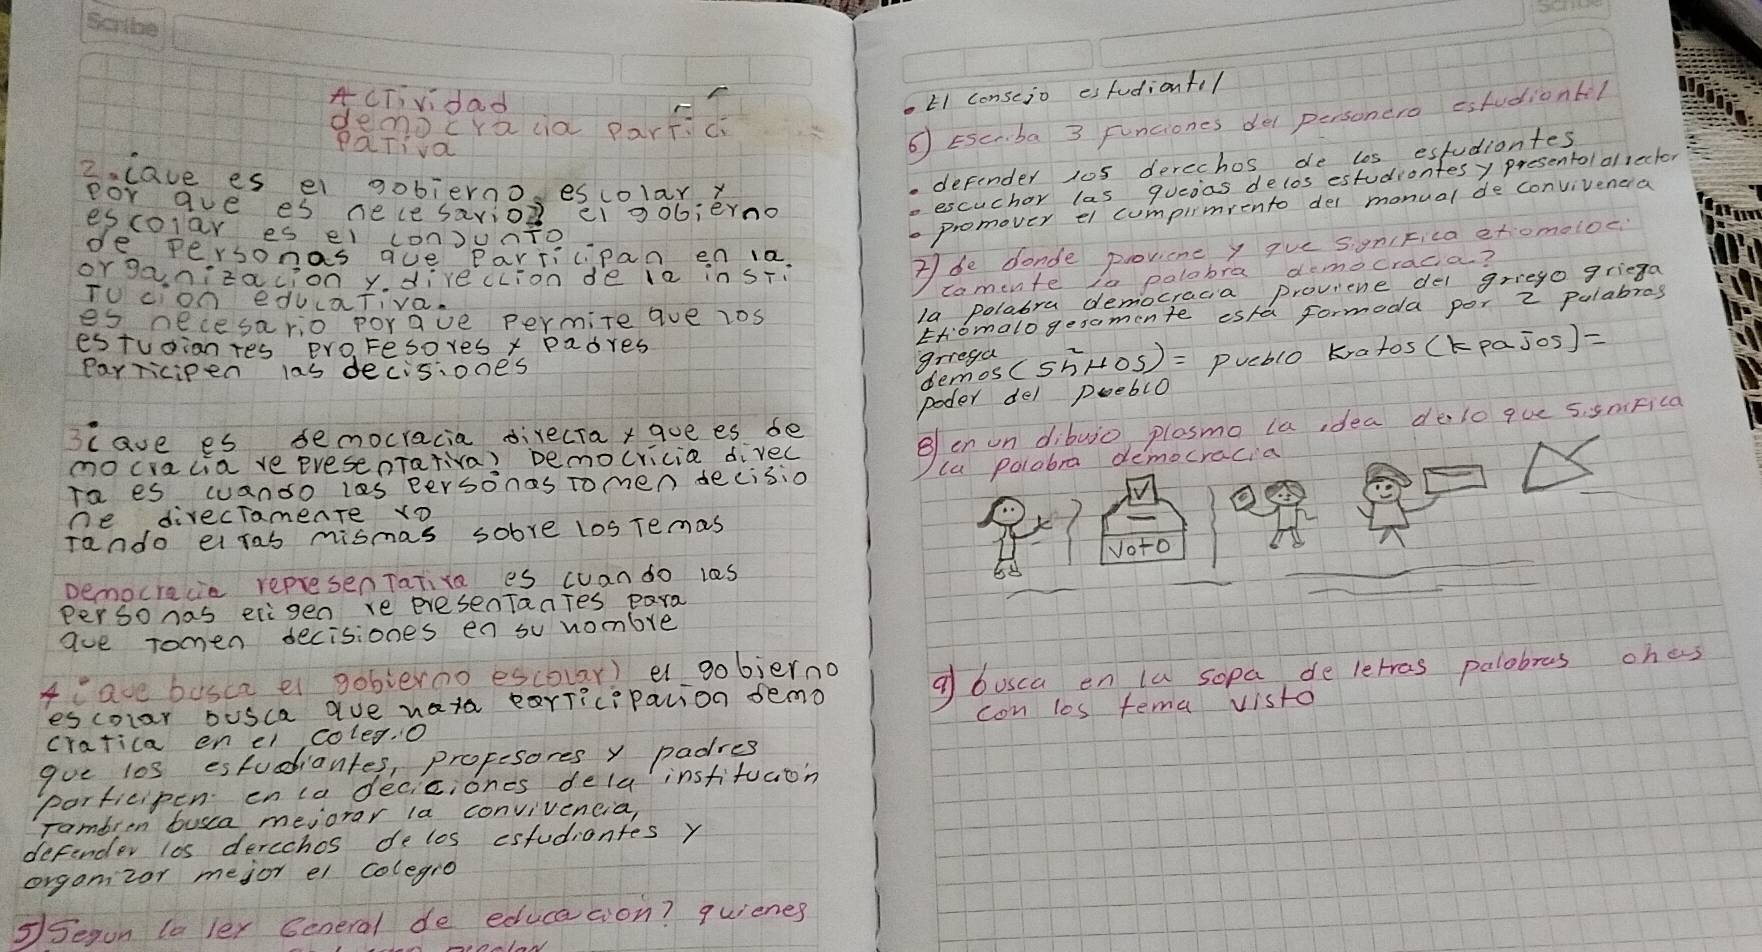 Scribe
Actividad
democracia partici
pativa
2.¿que es el gobierno escolar y
por que es necesario? el gobierno
escolar es el conjunto
de personas que participan en la.
organizacion y direccion de la insti
tucion educativa.
es necesario porque permite que los
estudiantes profesores y padres
participen las decisiones
3¿que es democracia directa y que es de
mocracia representativa) Democricia direc
ta es cuando las personas tomen decisio
ne directamente vo
tando el tas mismas sobre los temas
Democracia representativa es cuando las
personas eligen representantes para
que tomen decisiones en su nombre
4¿que busca el gobierno escolar) el gobierno
escolar busca que haya participacion demo
cratica en el colegio
que los estudiantes, profesores y padres
participen en la deciciones dela institución
Tambien busca mejorar la convivencia,
defender los derechos de los estudiantes y
organizar mejor el colegio
5) Segun la ley General de educacion? quienes
Scribe
• El consejo estudiantil
6) Escriba 3 funciones del personero estudiantil
• defender los derechos de los estudiantes
• escuchar las quejas de los estudiantes y presentolal rector
• promover el cumplimiento del manual de convivencia
7) de donde proviene y que significa etiomoloc:
camente la palabra democracia?
la palabra democracia proviene del griego griega
Etiomalogesamente está formada por 2 palabras
griega
demos (ShHos) = pueblo Kratos (kpajos) =
poder del pueblo
8) en un dibujo plasmo la idea delo que significa
la palabra democracia
voto
9) busca en la sopa de letras palabras ohas
con los tema visto